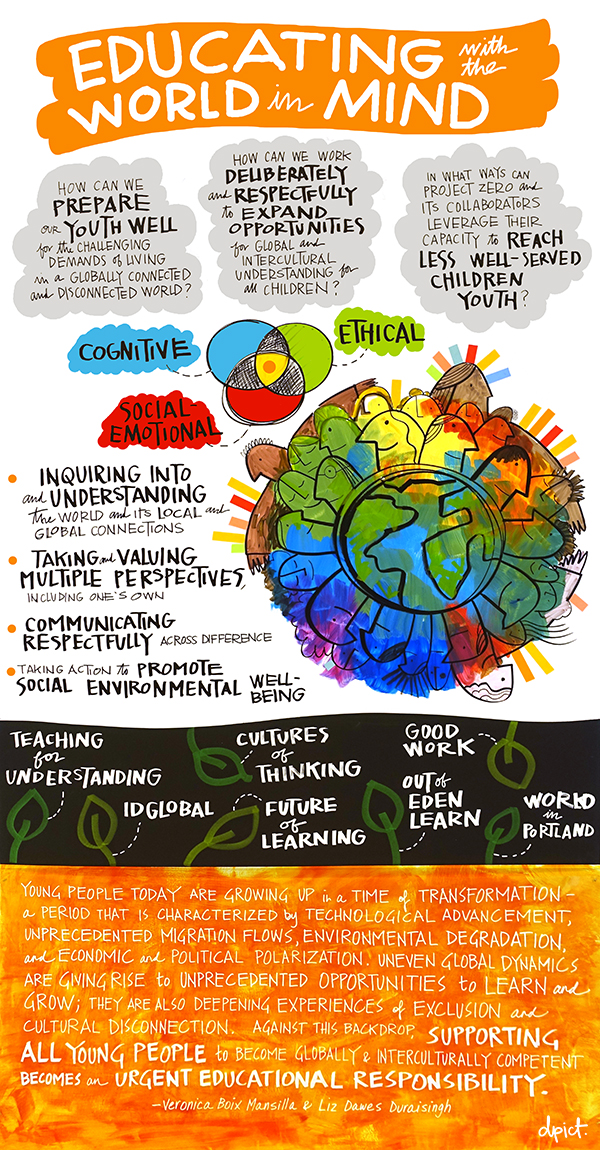 EDUCATING with the
WORLD in MIND
HOW CAN WE
PREPARE
OUR YOUTH WELL
for the CHALLENGING
DEMANDS of LIVING
in a GLOBALLY CONNECTED
and DISCONNECTED WORLD?
HOW CAN WE WORK
DELIBERATELY
and RESPECTFULLY
to EXPAND
OPPORTUNITIES
for GLOBAL and
INTERCULTURAL
UNDERSTANDING for
all CHILDREN?
IN WHAT WAYS CAN
PROJECT ZERO and
ITS COLLABORATORS
LEVERAGE THEIR
CAPACITY to REACH
LESS WELL-SERVED
CHILDREN
YOUTH?
COGNITIVE
ETHICAL
SOCIAL-
EMOTIONAL
• INQUIRING INTO
and UNDERSTANDING
the WORLD and ITS LOCAL and
GLOBAL CONNECTIONS
• TAKING and VALUING
MULTIPLE PERSPECTIVES,
INCLUDING ONE'S OWN
• COMMUNICATING
RESPECTFULLY ACROSS DIFFERENCE
• TAKING ACTION to PROMOTE
SOCIAL ENVIRONMENTAL WELL-
BEING
TEACHING
for
UNDERSTANDING
ID GLOBAL
CULTURES
of
THINKING
FUTURE
of
LEARNING
GOOD
WORK
OUT of
EDEN
LEARN
WORLD
in
PORTLAND
YOUNG PEOPLE TODAY ARE GROWING UP in a TIME of TRANSFORMATION –
a PERIOD THAT IS CHARACTERIZED by TECHNOLOGICAL ADVANCEMENT,
UNPRECEDENTED MIGRATION FLOWS, ENVIRONMENTAL DEGRADATION,
and ECONOMIC and POLITICAL POLARIZATION. UNEVEN GLOBAL DYNAMICS
ARE GIVING RISE to UNPRECEDENTED OPPORTUNITIES to LEARN and
GROW; THEY ARE ALSO DEEPENING EXPERIENCES of EXCLUSION and
CULTURAL DISCONNECTION. AGAINST THIS BACKDROP, SUPPORTING
ALL YOUNG PEOPLE to BECOME GLOBALLY & INTERCULTURALLY COMPETENT
BECOMES an URGENT EDUCATIONAL RESPONSIBILITY.
–Veronica Boix Mansilla & Liz Dawes Duraisingh
dpict.